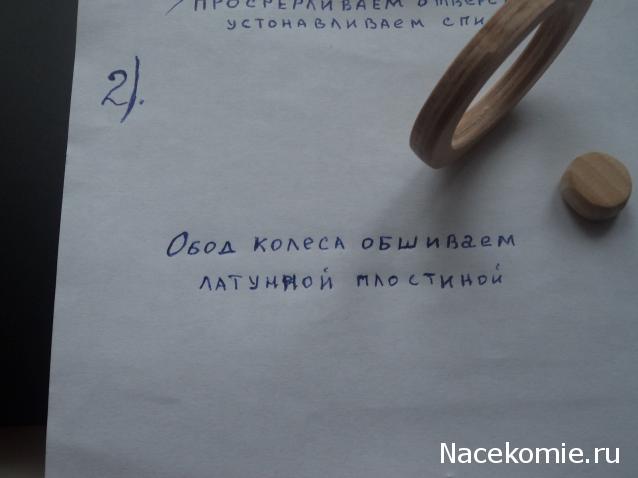 ПРОСВЕРЛИВАЕМ
УСТОНАВЛИВАЕМ
2).
ОБОД КОЛЕСА ОБШИВАЕМ
ЛАТУННОЙ ПЛОСТИНОЙ
Nacekomie.ru